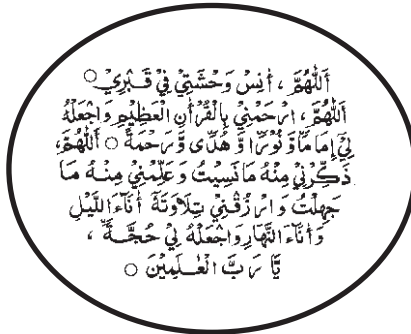 أَللّٰهُمَّ ، أٰنِسْ وَحْشَتِيْ فِيْ قَبْرِيْ ○
أَللّٰهُمَّ ، ارْحَمْنِيْ بِالْقُرْاٰنِ الْعَظِيْمِ وَاجْعَلْهُ
لِيْ إِمَامًا وَّ نُوْرًا وَّ هُدًى وَّ رَحْمَةً ○ أَللّٰهُمَّ ،
ذَكِّرْنِيْ مِنْهُ مَا نَسِيْتُ وَ عَلِّمْنِيْ مِنْهُ مَا
جَهِلْتُ وَ ارْزُقْنِيْ تِلَاوَتَهٗ أٰنَآءَ اللَّيْلِ
وَ أٰنَآءَ النَّهَارِ وَاجْعَلْهُ لِيْ حُجَّةً ،
يَّا رَبَّ الْعٰلَمِيْنَ ○